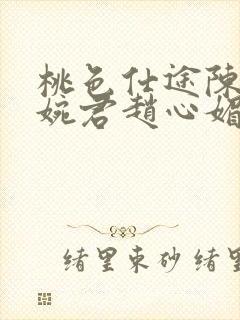 桃色仕途陳
婉君趙心媚
緒里束砂 緒里